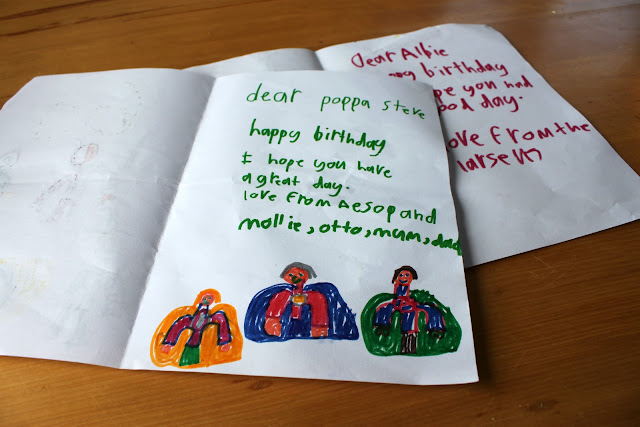 dear poppa steve
happy birthday
I hope you have
a great day.
love from Aesop and
mollie, otto, mum, dad
Dear Albie
birthday
you had
day.
from the